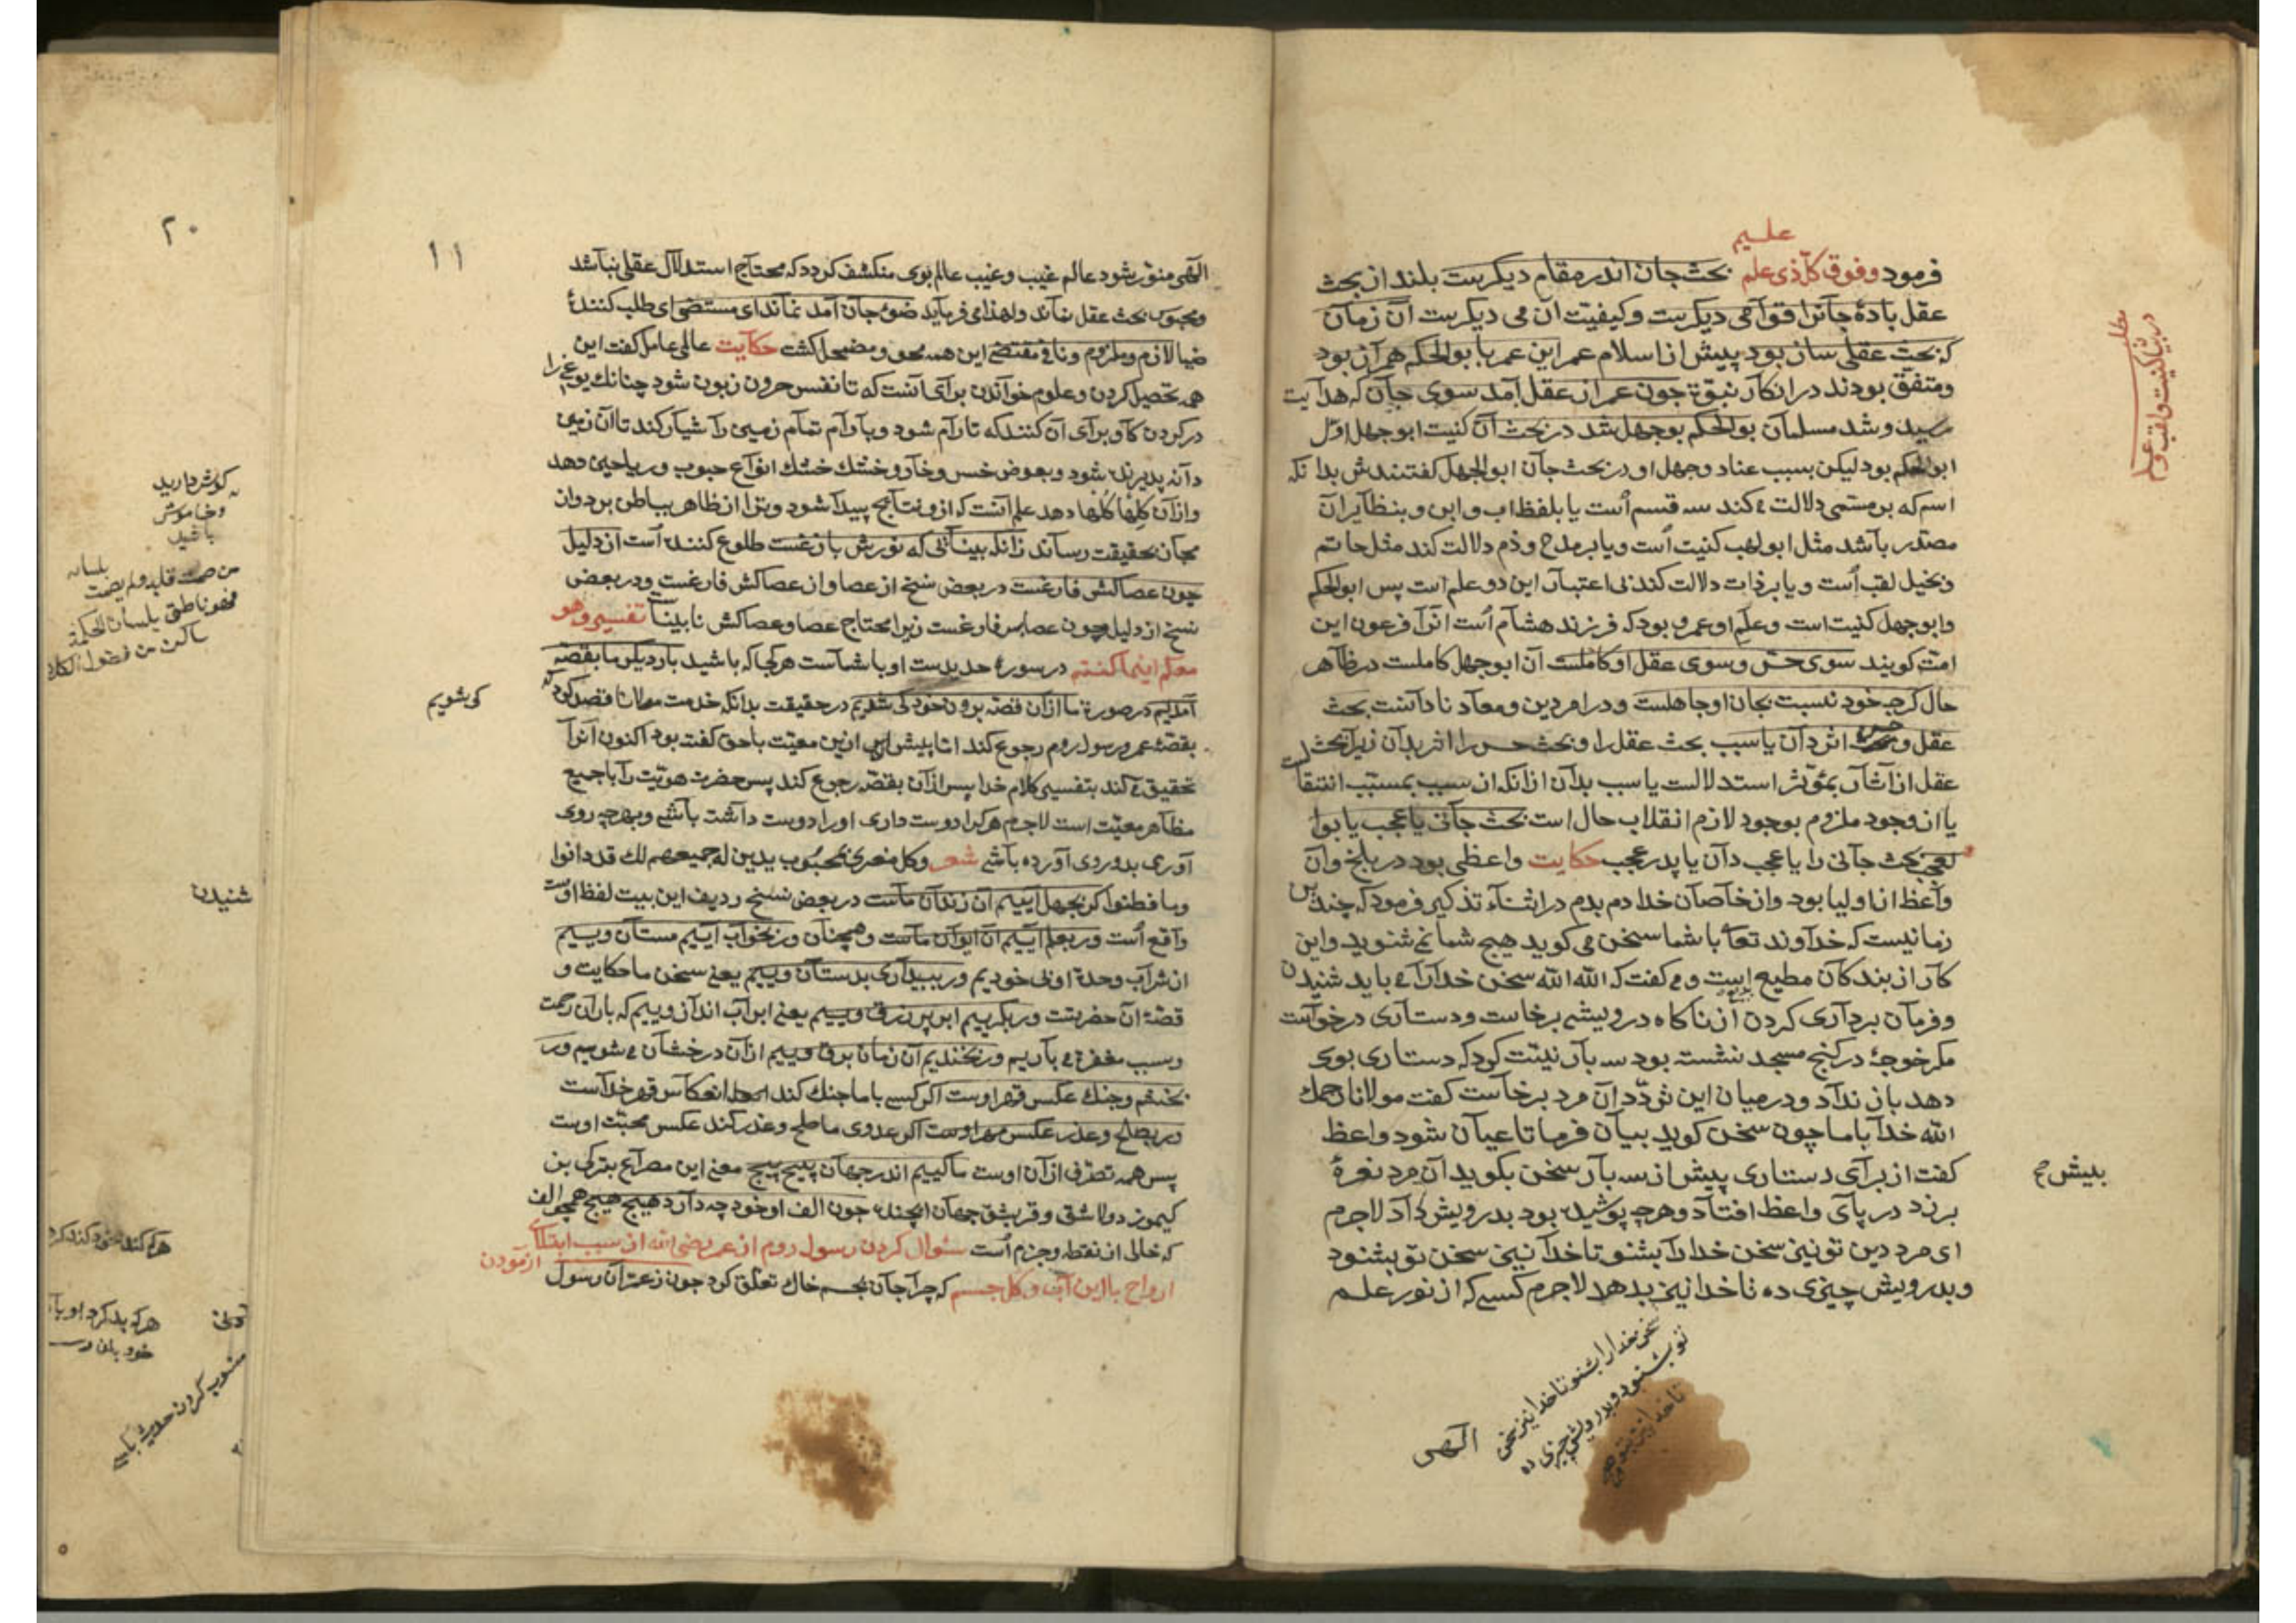 علیم
فرمود وفوق کل ذی علم بحث جان اندر مقام دیکرست بلند از بحث
عقل بادۀ جانرا قوامی دیکرست وکیفیت آن می دیکرست آن زمان
که بحث عقلی ساز بود پیش از اسلام عمر این عمر با بوالحکم همراز بود
ومتفق بودند در انکار نبوة چون عمر از عقل آمد سوی جان که هدایت
رسید وشد مسلمان بوالحکم بوجهل شد در بحث آن کنیت ابوجهل اول
ابوالحکم بود لیکن بسبب عناد وجهل او در بحث جان ابوالجهل کفتندش بدانکه
اسم که بر مسمی دلالت می کند سه قسم است یا بلفظ اب وابن وبنظایر آن
مصدر باشد مثل ابولهب کنیت است ویا بر مدح وذم دلالت کند مثل حاتم
وبخیل لقب است ویا بر ذات دلالت کند بی اعتبار این دو علم است پس ابوالحکم
وابوجهل کنیت است وعلم او عمرو بود که فرزند هشام است انرا فرعون این
امت کویند سوی حس وسوی عقل او کاملست آن ابوجهل کاملست در ظاهر
حال کرچه خود نسبت بجان او جاهلست ودر امر دین ومعاد نادانست بحث
عقل و حس اثر دان یا سبب بحث عقل را وبحث حس را اثر بدان زیرا بحث
عقل از آثار بمؤثر استدلالست یا سبب بدان ازانکه از سبب بمسبب انتقالست
یا از وجود ملزوم بوجود لازم انقلاب حال است بحث جانی یا عجب یا بوا
لعجب بحث جانی را یا عجب دان یا پدر عجب حکایت واعظی بود در بلخ وآن
واعظ از اولیا بود واز خاصان خدا دم بدم در اثناء تذکیر فرمود که چندین
زمانیست که خداوند تعا با شما سخن می کوید هیچ شما نمی شنوید واین
کار از بندکان مطیع می کفت که الله الله سخن خدا را می باید شنیدن
وفرمان برداری کردن از ناکاه درویشی برخاست ودستاری درخواست
مکر خوجۀ در کنج مسجد نشسته بود سه بار نیت کرد که دستاری بوی
دهد باز نداد ودر میان این تردد آن مرد برخاست کفت مولانا رحمك
الله خدا با ما چون سخن کوید بیان فرما تا عیان شود واعظ
کفت از برای دستاری پیش از سه بار سخن بکوید آن مرد نعرۀ
بزد در پای واعظ افتاد وهرچه پوشیده بود بدرویش داد لاجرم
ای مرد دین تو نیز سخن خدا را بشنو تا خدا نیز سخن تو بشنود
وبدرویش چیزی ده تا خدا نیز بدهد لاجرم کسی که از نور علم
بیش ح
سخن خدا را بشنو تا خدا نیز سخن
تو بشنود وبدرویش چیزی ده
تا خدا نیز
الهی
۱۱
الهی منور شود عالم غیب وغیب عالم بوی منکشف کردد که محتاج استدلال عقلی نباشد
ومحبوس بحث عقل نماند ولهذا می فرماید ضوء جان آمد نماند ای مستضی ای طلب کنندۀ
ضیا لازم وملزوم ونافی مقتضی این همه محو ومضمحل کشت حکایت عالمی عامل کفت این
همه تحصیل کردن وعلوم خواندن برای آنست که تا نفس حرون زبون شود چنانك یوغ را
در کردن کاو برای آن کنند که تا رام شود وبآرام تمام زمین را شیار کند تا آن زمین
دانه پذیرنده شود وبعوض خس وخار وخشك خشك انواع حبوب وریاحین دهد
واز آن کلها دهد علم آنست که ازو نتایج پیدا شود وترا از ظاهر بباطن برد واز
مجاز بحقیقت رساند زانکه بینائی که نورش بازغست طلوع کننده است از دلیل
چون عصاکش فارغست در بعض نسخ از عصا واز عصاکش فارغست ودر بعض
نسخ از دلیل وچون عصا بس فارغست زیرا محتاج عصا وعصاکش نابیناست تفسیر وهو
معکم اینما کنتم در سورۀ حدیدست او با شماست هر کجا که باشید بار دیکر ما بقصه
آمدیم در صورة ما از آن قصه برون خود کی شدیم در حقیقت بدانکه خدمت مولانا قصد کرد که
کوشویم
بقصۀ عمر ورسول روم رجوع کند اما پیش ازین معیت با حق کفته بود اکنون آنرا
تحقیق می کند بتفسیر کلام خدا پس از آن بقصه رجوع کند پس حضرت هویت را با جمیع
مظاهر معیت است لاجرم هر کرا دوست داری اورا دوست داشته باشی وبهرچه روی
آوری بدو روی آورده باشی شعر وکل مغری بمحبوب یدین له جمیعهم لك قد دانوا
وما فطنوا کر بجهل آییم آن زندان ماست در بعض نسخ ردیف این بیت لفظ اوست
واقع است ور بعلم آییم آن ایوان ماست وهمچنان ور بخواب آییم مستان وییم
از شراب وحدة او بی خودیم ور ببیداری بدستان وییم یعنی سخن ما حکایت و
قصۀ آن حضرتست ور بکرییم ابر پر زرق وییم یعنی ابر آب انداز وییم که باران رحمت
وسبب مغفرة می باریم ور بخندیم آن زمان برق وییم از آن درخشان می شویم ور
بخشم وجنك عکس قهر اوست اکر کسی با ما جنك کند انعکاس قهر خداست
ور بصلح وعذر عکس مهر اوست اکر عدوی ما صلح وعذر کند عکس محبت اوست
پس همه تصرف از آن اوست ما کییم اندر جهان پیچ پیچ معنی این مصراع بترکی بن
کیموز دولاشق وقریشق جهان ایچنده چون الف او خود چه دارد هیچ هیچ همچو الف
که خالی از نقطه وجزم است سؤال کردن رسول روم از عمر رضی الله از سبب ابتلای
ارواح با این آب وکل جسم که چرا جان بجسم خاك تعلق کرد چون زعمر آن رسول
۲۰
کوش دارید
وخاموش
باشید
بلسانه
من صمت قلبه ولم یصمت
فهو ناطق بلسان الحکمة
ساکن من فضول الکلام
شنیدن
هرکه بد کرد او با
خود بدان
منسوب کردن حدیث بکسی